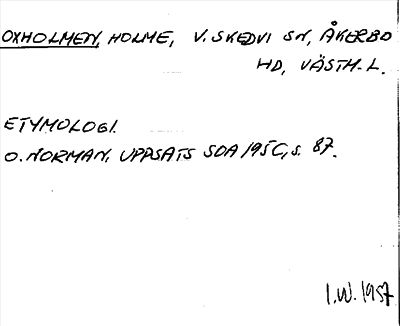 OXHOLMEN, HOLME, V. SKEDVI SN, ÅKERBO
HD, VÄSTM. L.
ETYMOLOGI.
O. NORMAN, UPPSATS SOA 1950, s. 87.
I.W. 1957